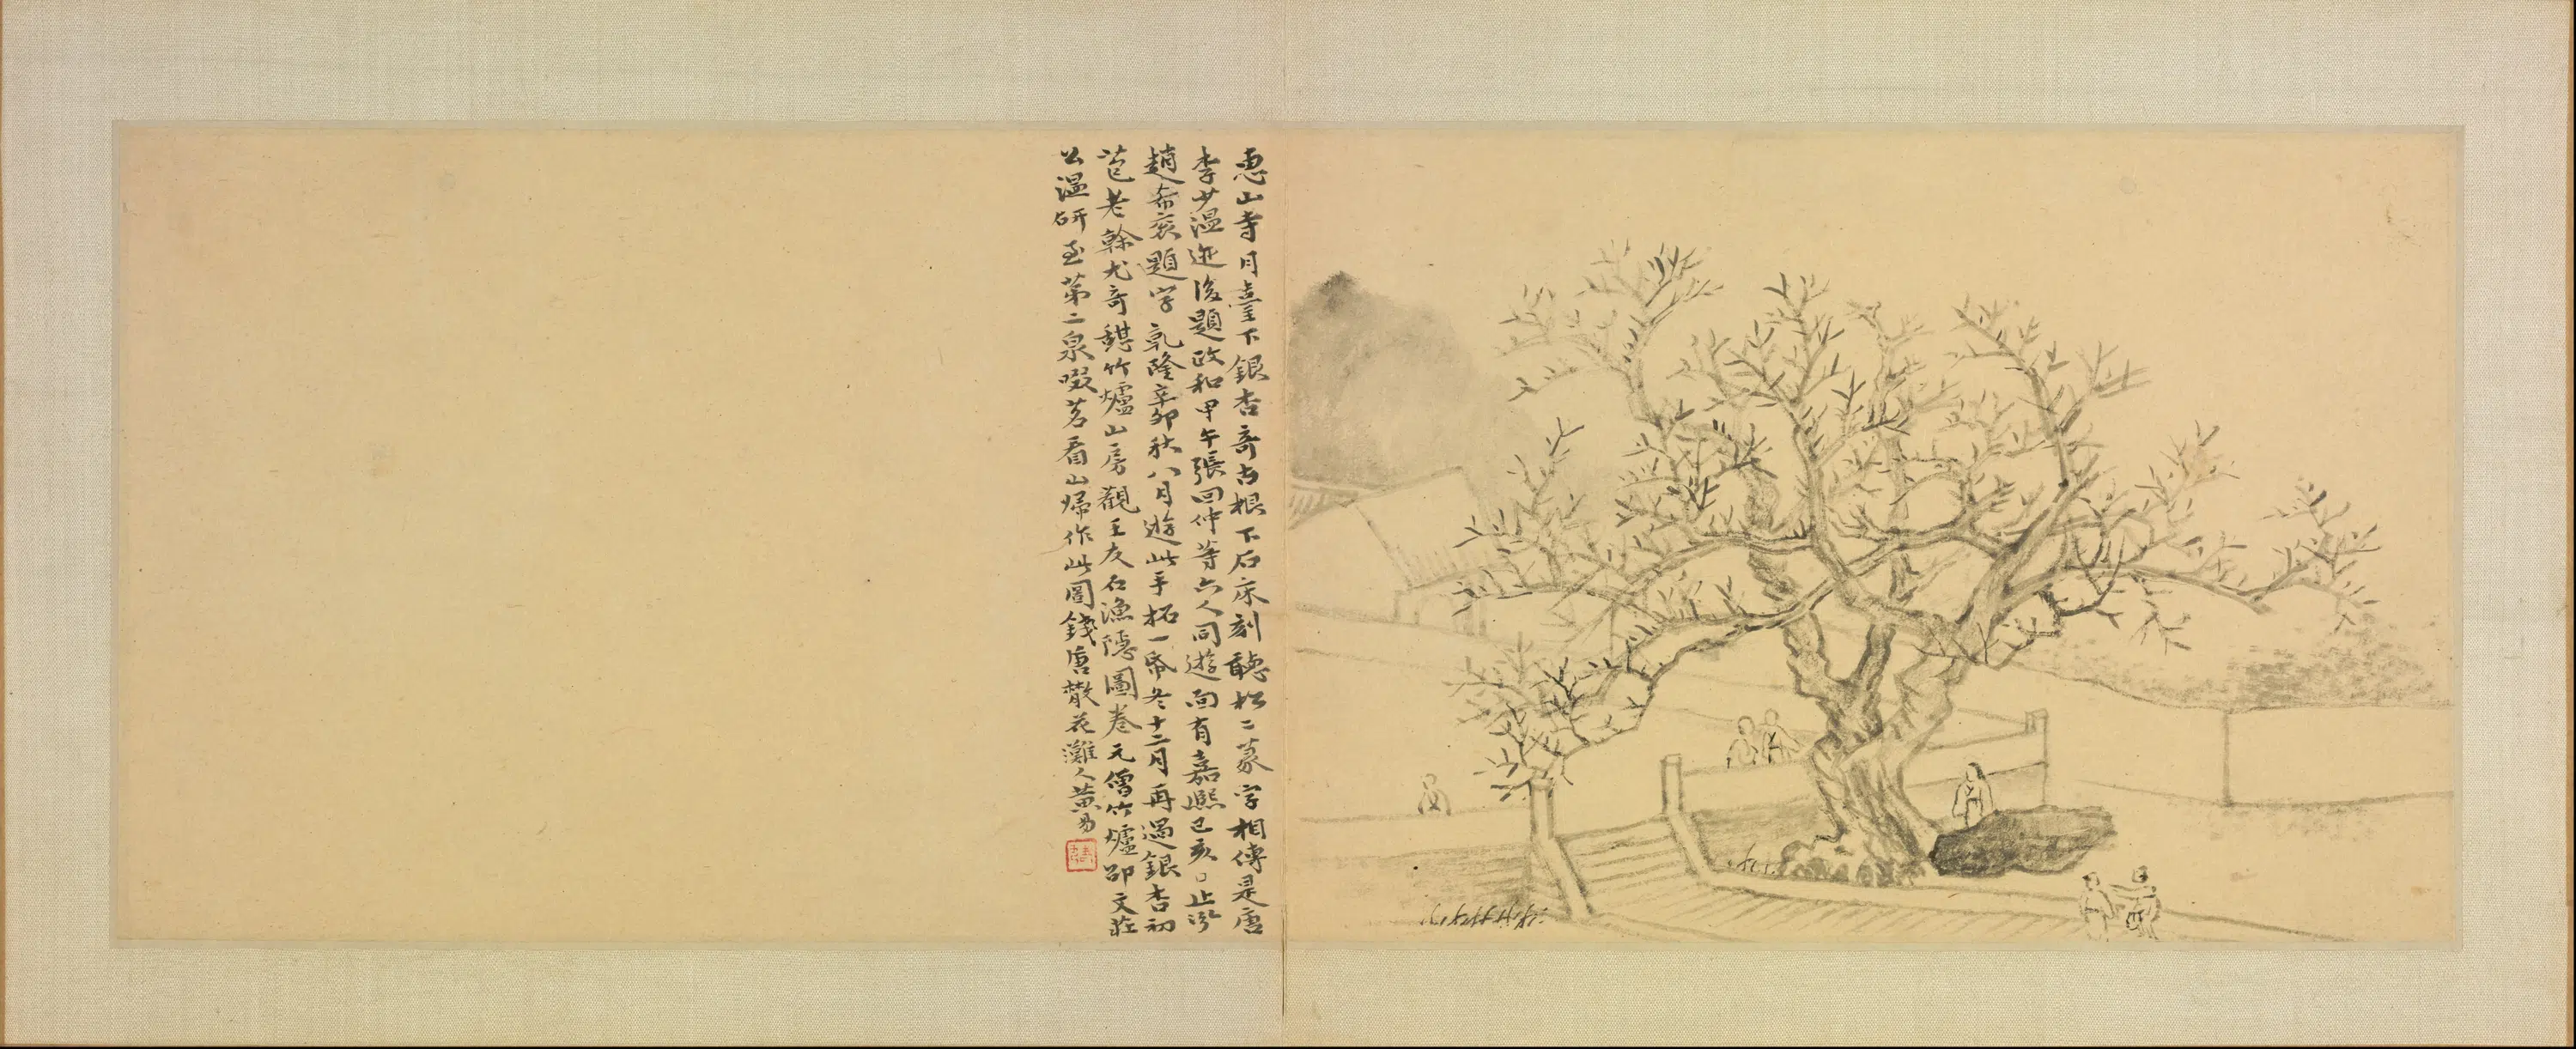 惠山寺月臺下銀杏奇古根下石床刻聽松二篆字相傳是唐
李少溫迹後題政和甲午張回仲等六人同遊向有嘉熙己亥□止泓
趙希袞題字乾隆辛卯秋八月遊此手拓一帋冬十二月再過銀杏初
苞老榦尤奇就竹爐山房觀王友石漁隱圖卷元僧竹爐邵文莊
公溫研至第二泉啜茗看山歸作此圖錢唐散花灘人黃易